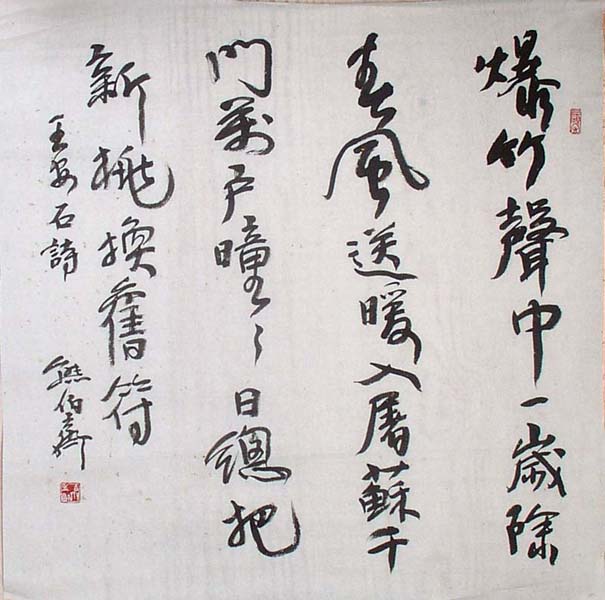 爆竹聲中一歲除
春風送暖入屠蘇千
門萬戶曈〻日總把
新桃換舊符
王安石詩
熊伯齊